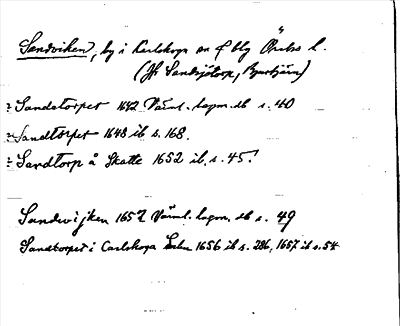 Sandviken, by i Karlskoga sn Örebro l.
(Jfr Sandsjötorp, Bjurtjärn)
Sandatorpet 1642 Värml. lagm. db s. 40
Sandtorpet 1648 ib s. 168.
Sandtorp å Skatte 1652 ib. s. 45.
Sandwijken 1652 Värml. lagm. db s. 49
Sandtorpet i Carlskoga Sochn 1656 ib s. 286, 1657 ib s. 54